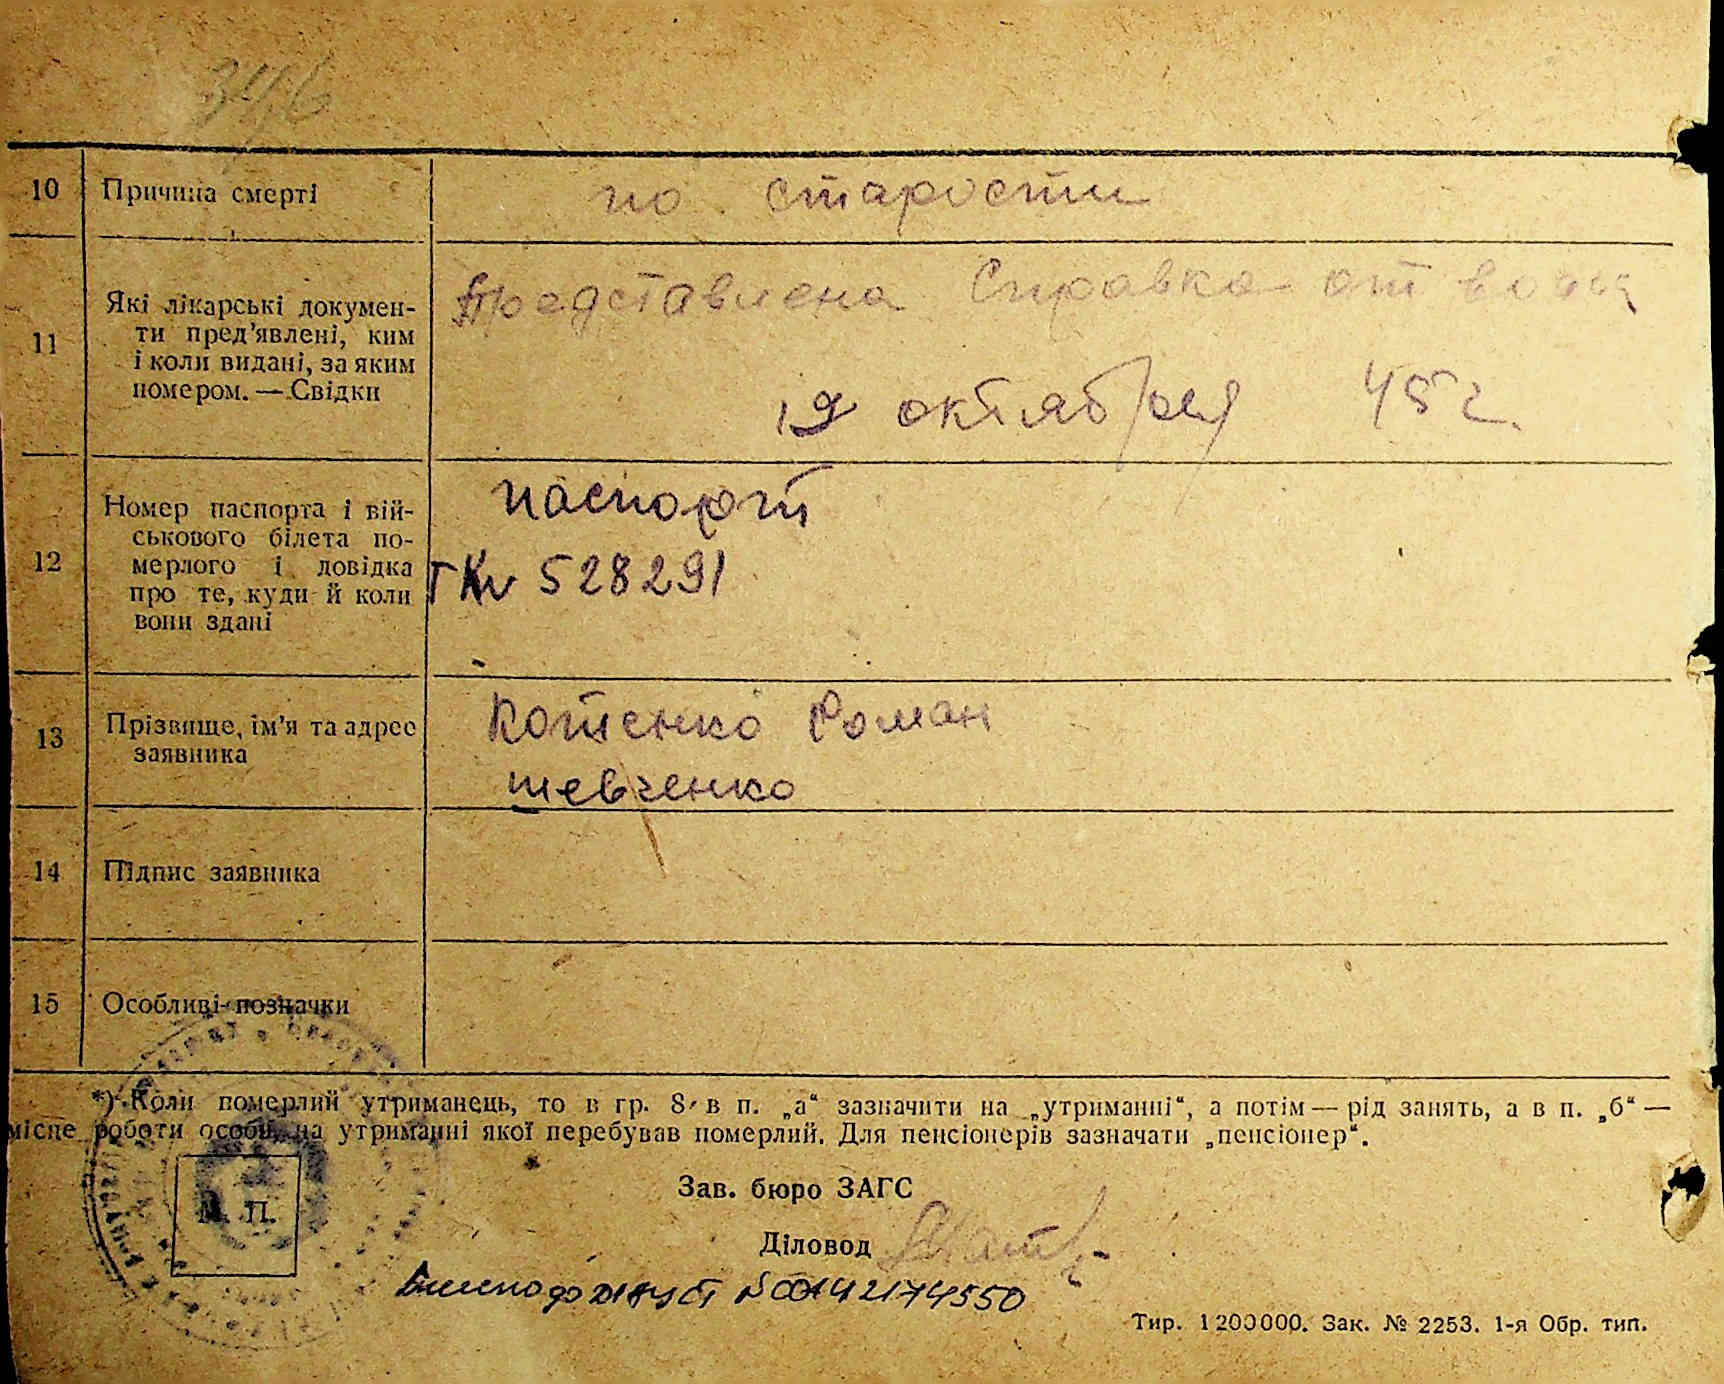 346
10 Причина смерті
по старости
11 Які лікарські докумен-
ти пред’явлені, ким
і коли видані, за яким
номером. — Свідки
Представлена Справка от
19 октября 45 г.
12 Номер паспорта і вій-
ськового білета по-
мерлого і довідка
про те, куди й коли
вони здані
паспорт
528291
13 Прізвище, ім’я та адрес
заявника
Котенко Роман
шевченко
14 Підпис заявника
15 Особливі позначки
*) Коли померлий утриманець, то в гр. 8 в п. „а“ зазначити на „утриманні“, а потім — рід занять, а в п. „б“ —
місце роботи особи, на утриманні якої перебував померлий. Для пенсіонерів зазначати „пенсіонер“.
М. П.
Зав. бюро ЗАГС
Діловод
Внесено до ДРАЦСГ №00142174550
Тир. 1200000. Зак. № 2253. 1-я Обр. тип.